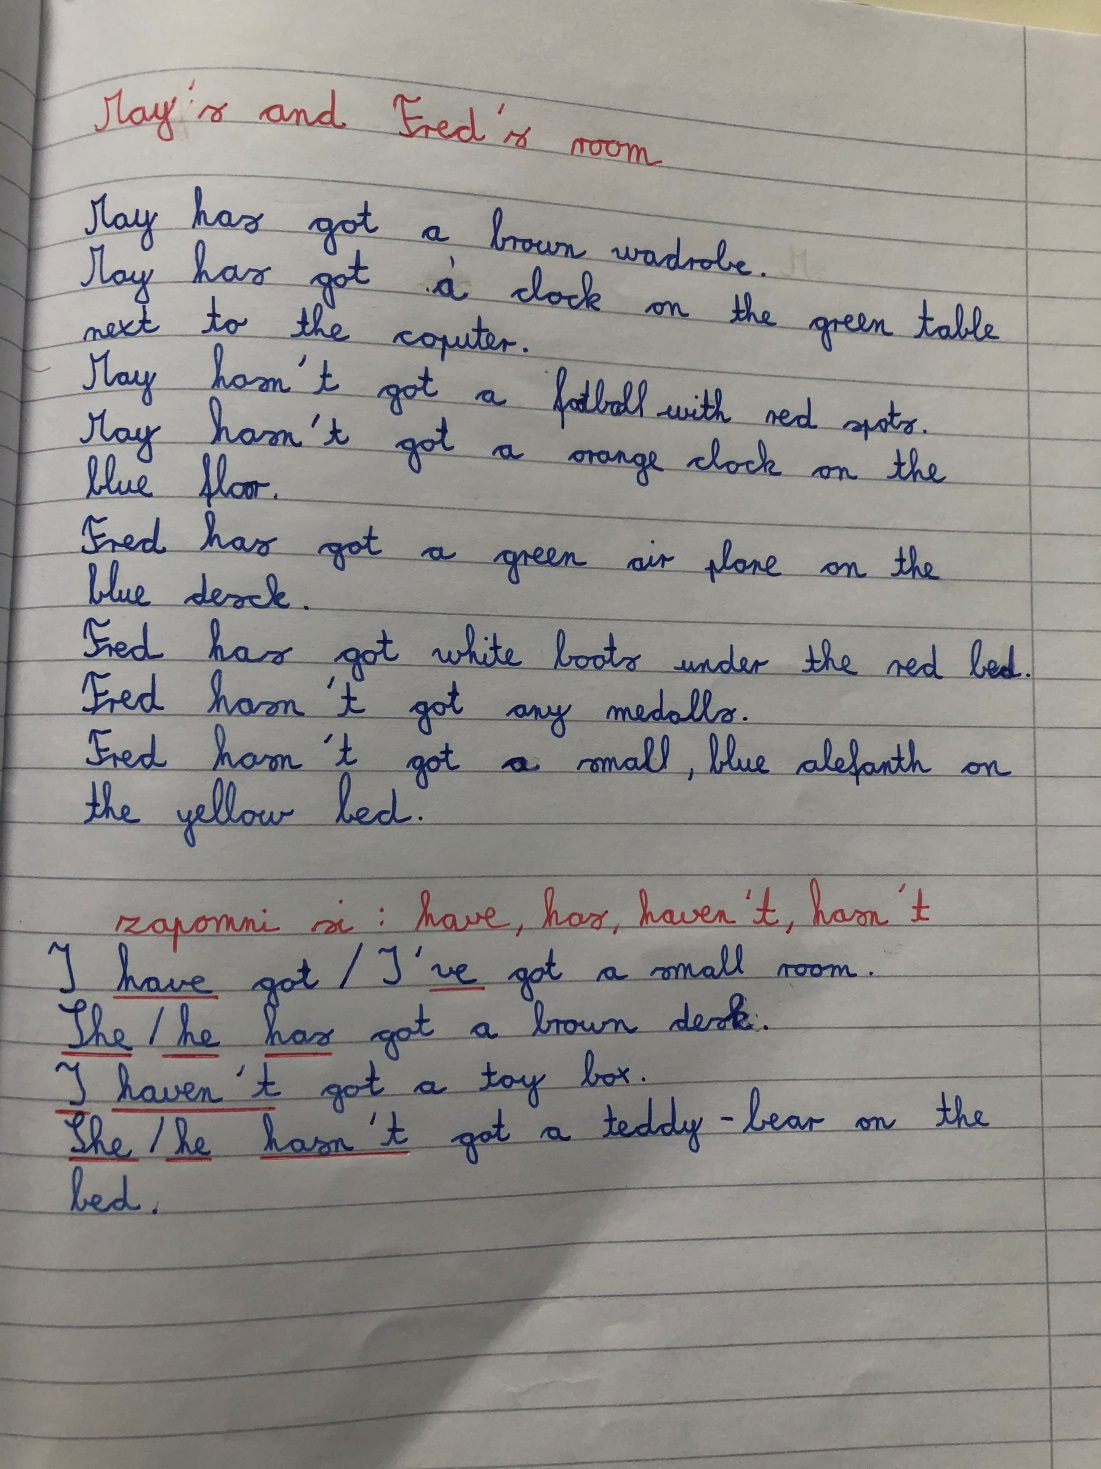 May's and Fred's room
May has got a brown wadrobe.
May has got a clock on the green table
next to the coputer.
May hasn't got a fotball with red spots.
May hasn't got a orange clock on the
blue floor.
Fred has got a green air plane on the
blue desck.
Fred has got white boots under the red bed.
Fred hasn't got any medalls.
Fred hasn't got a small, blue alefanth on
the yellow bed.
zapomni si: have, has, haven't, hasn't
I have got / I've got a small room.
She / he has got a brown desk.
I haven't got a toy box.
She / he hasn't got a teddy-bear on the
bed.